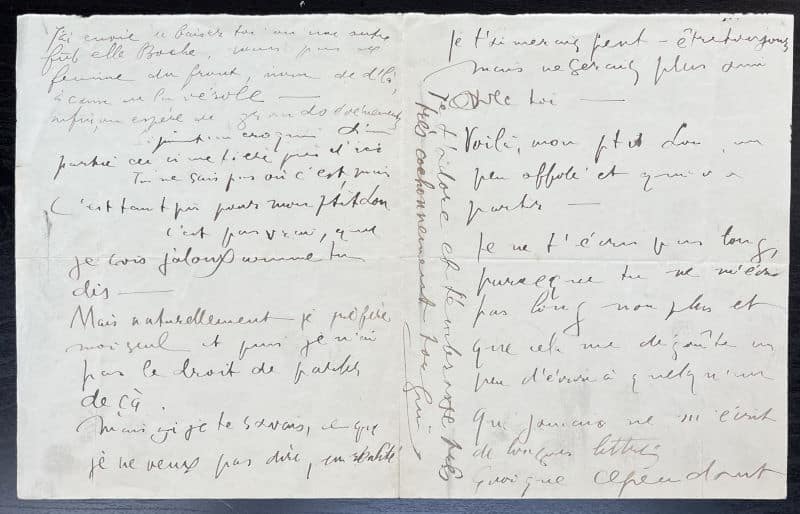 J'ai envie de baiser toi ou une autre
fut elle Boche, mais pas de
femme du front, nom de d'là,
à cause de la vérole —
enfin, on espère de grands événements
partie ici
Tu ne sais pas où c'est, mais
C'est tant pis pour mon ptit Lou
c'est pas vrai, que
je sois jaloux comme tu
dis —
Mais naturellement je préfère
moi seul et puis je n'ai
pas le droit de parler
de çà.
Mais si je te savais, ce que
je ne veux pas dire, en réalité
je t'aimerais peut-être toujours
mais ne serais plus ami
avec toi —
Voilà, mon ptit Lou, un
peu affolé et qui va
partir —
Je ne t'écris pas long,
parce que tu ne m'écris
pas long non plus et
que cela me dégoûte un
peu d'écrire à quelqu'un
qui jamais ne m'écrit
de longues lettres
quoique cependant
Je t'adore et t'embrasse très
très cochonnement ton Gui